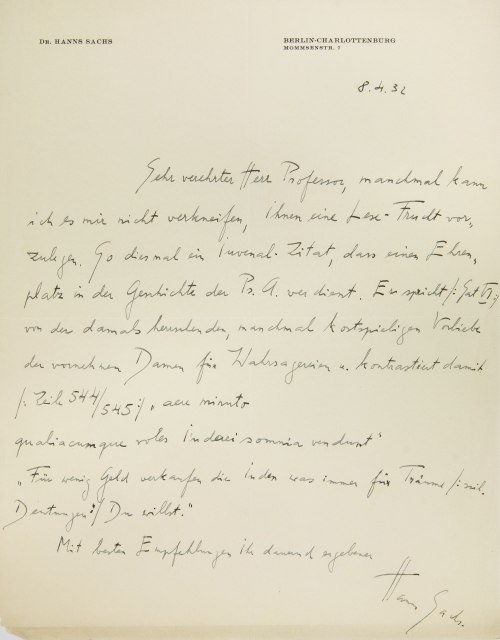 Dr. HANNS SACHS
BERLIN-CHARLOTTENBURG
MOMMSENSTR. 7
8.4.32
Sehr verehrter Herr Professor, manchmal kann
ich es mir nicht verkneifen, Ihnen eine Lese-Frucht vor-
zulegen. So diesmal ein Juvenal-Zitat, dass einen Ehren-
platz in der Geschichte der Ps. A. verdient. Er spricht /: Sat VI :/
von der damals herrschenden, manchmal kostspieligen Vorliebe
der vornehmen Damen für Wahrsagereien u. kontrastiert damit
/: Zeile 544/545 :/ „aere minuto
qualiacumque voles Iudaei somnia vendunt“
„Für wenig Geld verkaufen die Juden was immer für Träume /: scil.
Deutungen :/ Du willst.“
Mit besten Empfehlungen Ihr dauernd ergebener
Hanns Sachs.